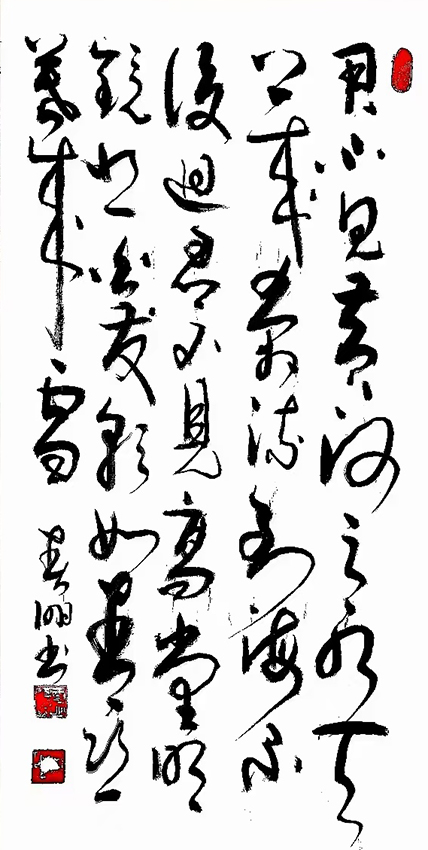 君不見黄河之水天
上来奔流到海不
復迴君不見高堂明
鏡悲白发朝如青絲
暮成雪
春 书